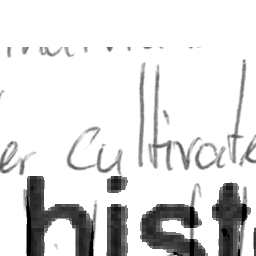 er cultivate
hist